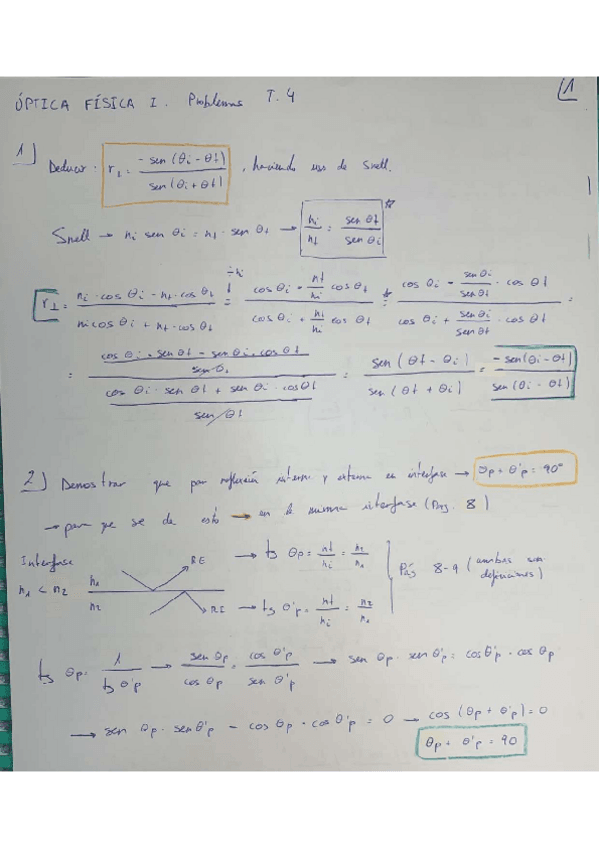 ÓPTICA FÍSICA I. Problemas T.4
1
1) Deducir: r⊥ = -sen(θi-θt) / sen(θi+θt), haciendo uso de Snell.
Snell → ni sen θi = nt · sen θt → ni/nt = sen θt / sen θi *
r⊥ = (ni · cos θi - nt · cos θt) / (ni cos θi + nt · cos θt) =^(÷ni) (cos θi - nt/ni cos θt) / (cos θi + nt/ni cos θt) =^* (cos θi - sen θi/sen θt · cos θt) / (cos θi + sen θi/sen θt · cos θt) =
= ((cos θi · sen θt - sen θi · cos θt) / sen θt) / ((cos θi · sen θt + sen θi · cos θt) / sen θt) = sen(θt - θi) / sen(θt + θi) = -sen(θi - θt) / sen(θi - θt)
2) Demostrar que para reflexión interna y externa en interfase → θp + θ'p = 90°
→ para que se da esto → en la misma interfase (Pág. 8)
Interfase
n1 < n2
n1
n2
RE
RI
→ tg θp = nt/ni = n2/n1
→ tg θ'p = nt/ni = n2/n1
Pág 8-9 (ambas son definiciones)
tg θp = 1 / tg θ'p → sen θp / cos θp = cos θ'p / sen θ'p → sen θp · sen θ'p = cos θ'p · cos θp
→ sen θp · sen θ'p - cos θp · cos θ'p = 0 → cos (θp + θ'p) = 0
θp + θ'p = 90